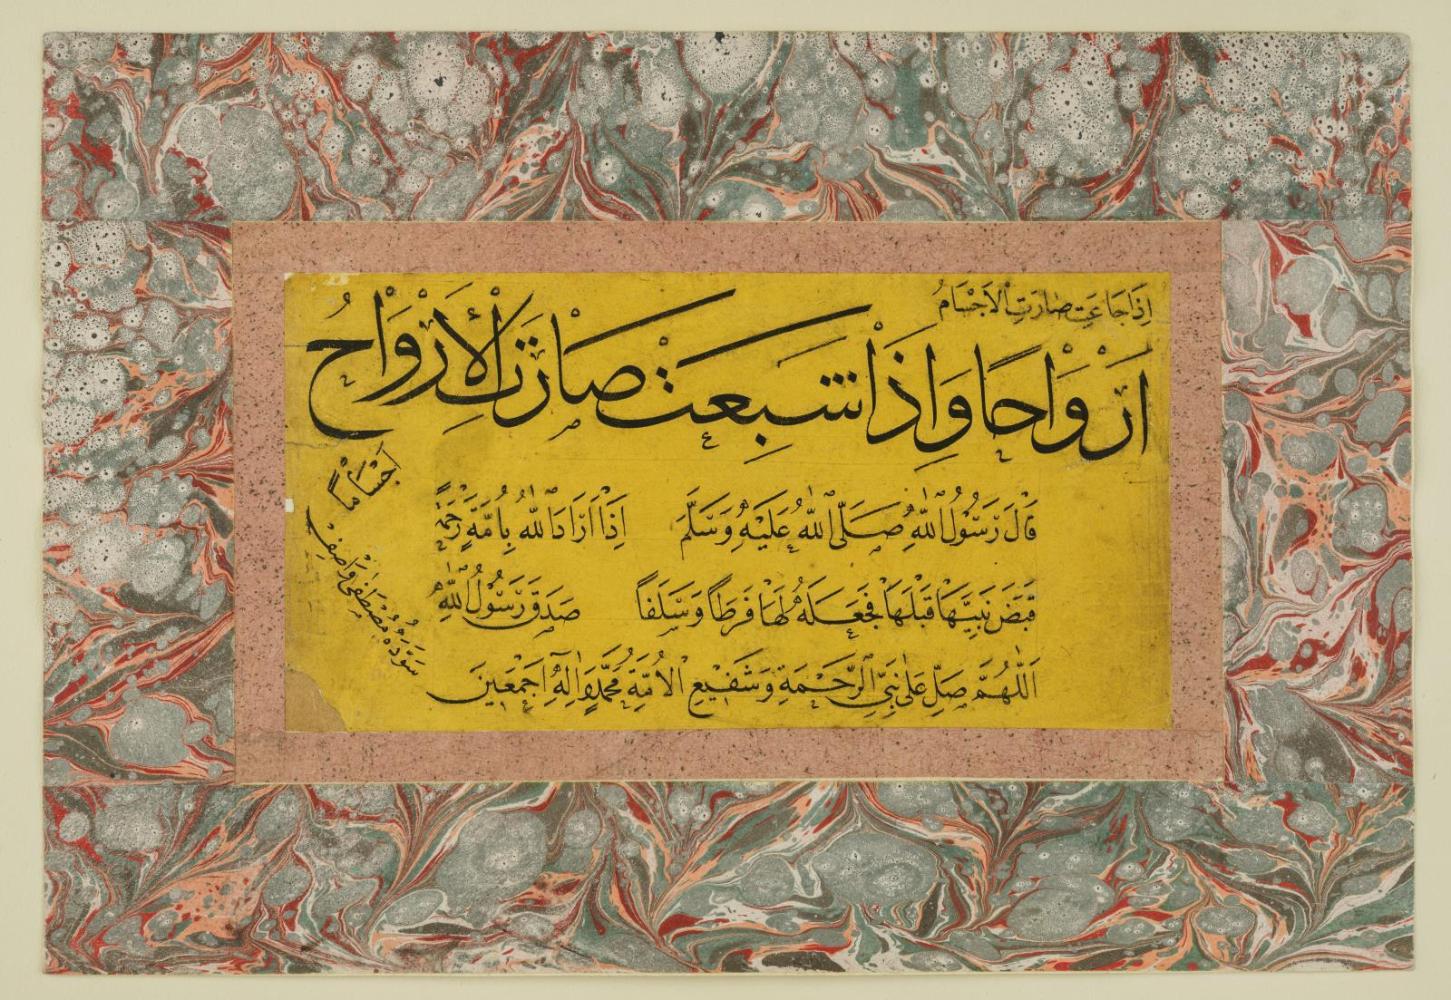 اِذَا جَاعَتِ صَارَتِ الْاَجْسَامُ
اَرْوَاحًا وَاِذَا شَبِعَتْ صَارَتِ الْاَرْوَاحُ
اَجْسَامًا
قَالَ رَسُولُ اللّٰهِ صَلَّى اللّٰهُ عَلَيْهِ وَسَلَّمَ اِذَا اَرَادَ اللّٰهُ بِاُمَّةٍ رَحْمَةً
قَبَضَ نَبِيَّهَا قَبْلَهَا فَجَعَلَهُ لَهَا فَرَطًا وَسَلَفًا صَدَقَ رَسُولُ اللّٰهِ
اَللّٰهُمَّ صَلِّ عَلٰى نَبِيِّ الرَّحْمَةِ وَشَفِيعِ الْاُمَّةِ مُحَمَّدٍ وَاٰلِهِ اَجْمَعِينَ
سَوَّدَهُ مُصْطَفٰى وَاصِفْ